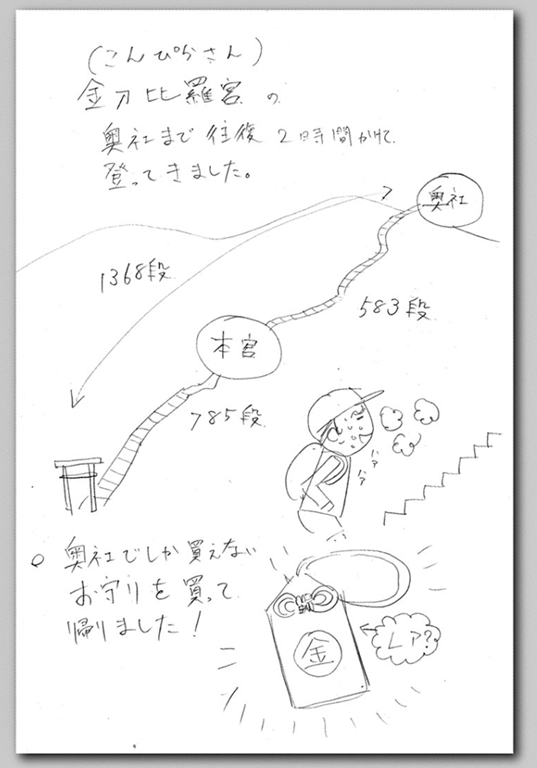 (こんぴらさん)
金刀比羅宮の
奥社まで往復2時間かけて
登ってきました。
奥社
1368段
583段
本宮
785段
ハァ
ハァ
奥社でしか買えない
お守りを買って
帰りました!
金
レア?